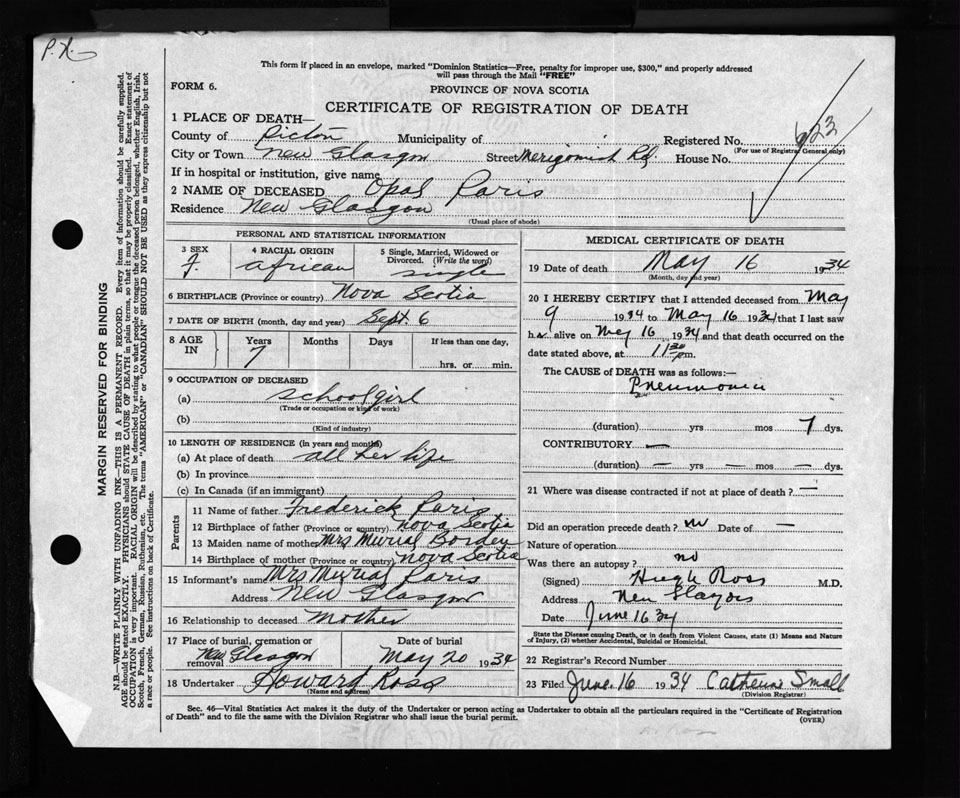 P.N.
This form if placed in an envelope, marked "Dominion Statistics—Free, penalty for improper use, $300," and properly addressed
will pass through the Mail "FREE"
FORM 6.
PROVINCE OF NOVA SCOTIA
CERTIFICATE OF REGISTRATION OF DEATH
1 PLACE OF DEATH—
County of Pictou Municipality of Registered No. 623
(For use of Registrar General only)
City or Town New Glasgow Street Merigomish Rd. House No.
If in hospital or institution, give name
2 NAME OF DECEASED Opal Paris
Residence New Glasgow
(Usual place of abode)
PERSONAL AND STATISTICAL INFORMATION
3 SEX F.
4 RACIAL ORIGIN african
5 Single, Married, Widowed or Divorced. (Write the word) single
6 BIRTHPLACE (Province or country) Nova Scotia
7 DATE OF BIRTH (month, day and year) Sept. 6
8 AGE IN Years 7 Months Days If less than one day, hrs. or min.
9 OCCUPATION OF DECEASED
(a) school girl
(Trade or occupation or kind of work)
(b)
(Kind of industry)
10 LENGTH OF RESIDENCE (in years and months)
(a) At place of death all her life
(b) In province
(c) In Canada (if an immigrant)
Parents
11 Name of father Frederick Paris
12 Birthplace of father (Province or country) Nova Scotia
13 Maiden name of mother Mrs Murial Borden
14 Birthplace of mother (Province or country) Nova Scotia
15 Informant's name Mrs Murial Paris
Address New Glasgow
16 Relationship to deceased Mother
17 Place of burial, cremation or removal New Glasgow Date of burial May 20 1934
18 Undertaker Howard Ross
(Name and address)
MEDICAL CERTIFICATE OF DEATH
19 Date of death May 16 1934
(Month, day and year)
20 I HEREBY CERTIFY that I attended deceased from May
9 1934 to May 16 1934 that I last saw
h alive on May 16, 1934 and that death occurred on the
date stated above, at 11 30 pm.
The CAUSE of DEATH was as follows:—
Pneumonia
(duration) yrs mos 7 dys.
CONTRIBUTORY —
(duration) — yrs — mos — dys.
21 Where was disease contracted if not at place of death? —
Did an operation precede death? no Date of —
Nature of operation
Was there an autopsy? no
(Signed) Hugh Ross M.D.
Address New Glasgow
Date June 16 34
State the Disease causing Death, or in death from Violent Causes, state (1) Means and Nature
of Injury, (2) whether Accidental, Suicidal or Homicidal.
22 Registrar's Record Number
23 Filed June 16 1934 Catherine Small
(Division Registrar)
Sec. 46—Vital Statistics Act makes it the duty of the Undertaker or person acting as Undertaker to obtain all the particulars required in the "Certificate of Registration
of Death" and to file the same with the Division Registrar who shall issue the burial permit.
(OVER)
MARGIN RESERVED FOR BINDING
N.B.—WRITE PLAINLY WITH UNFADING INK—THIS IS A PERMANENT RECORD. Every item of information should be carefully supplied.
AGE should be stated EXACTLY. PHYSICIANS should STATE CAUSE OF DEATH in plain terms, so that it may be properly classified. Exact statement of
OCCUPATION is very important. RACIAL ORIGIN will be described by stating to what people or tongue the deceased person belonged, whether English, Irish,
Scotch, French, German, Russian, Ruthenian, etc. The terms "AMERICAN" or "CANADIAN" SHOULD NOT BE USED as they express citizenship but not
a race or people. See instructions on back of Certificate.